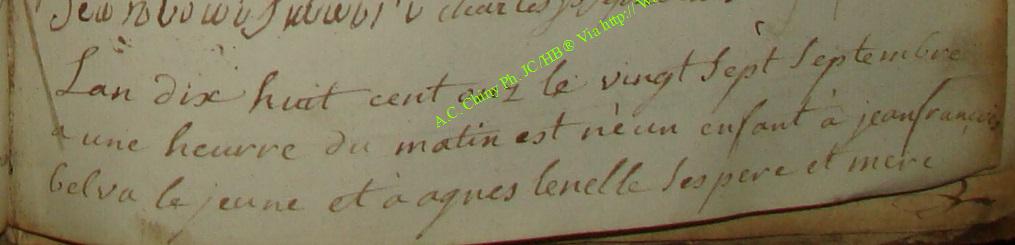 charles
Lan dix huit cent onz le vingt sept septembre
a une heurre du matin est né un enfant à jean françois
belva le jeune et à agnes lenelle ses pere et mere
A.C. Chiny Ph. JC/HB® Via http://w